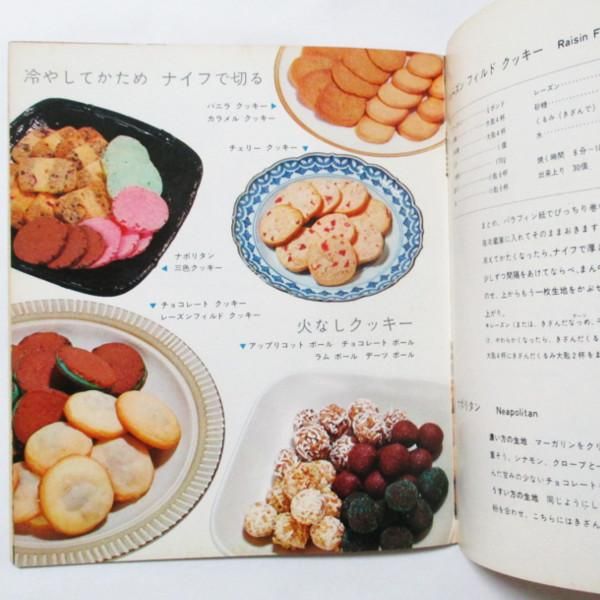 冷やしてかため ナイフで切る
バニラ クッキー▶
カラメル クッキー
チェリー クッキー▼
ナポリタン
◀ 三色クッキー
▼チョコレート クッキー
レーズンフィルド クッキー
火なしクッキー
▼アップリコット ボール チョコレート ボール
ラム ボール デーツ ボール
レーズン フィルド クッキー Raisin F
レーズン
砂糖
くるみ（きざんで）
水
焼く時間 8分〜1
出来上り 30個
まとめ、パラフィン紙でぴっちり巻
冷蔵庫に入れてそのままおきます
冷えてかたくなったら、ナイフで厚さ
少しずつ間隔をあけてならべ、まん
のせ、上からもう一枚生地をかぶせ
上がり。
ナポリタン Neapolitan
濃い方の生地 マーガリンをクリ
重そう、シナモン、クローブと一
んだ甘みの少ないチョコレートを
うすい方の生地 同じようにし
粉を合わせ、こちらにはきざん